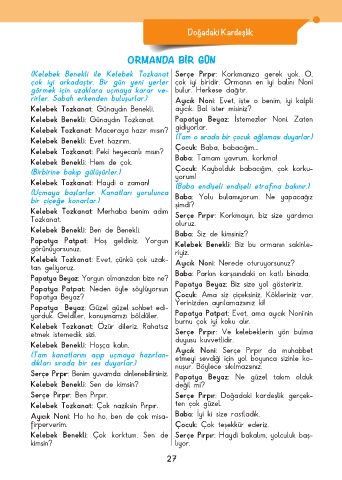 Doğadaki Kardeşlik
ORMANDA BİR GÜN
(Kelebek Benekli ile Kelebek Tozkanat
çok iyi arkadaştır. Bir gün yeni yerler
görmek için uzaklara uçmaya karar ve-
rirler. Sabah erkenden buluşurlar.)
Kelebek Tozkanat: Günaydın Benekli.
Kelebek Benekli: Günaydın Tozkanat.
Kelebek Tozkanat: Maceraya hazır mısın?
Kelebek Benekli: Evet hazırım.
Kelebek Tozkanat: Peki heyecanlı mısın?
Kelebek Benekli: Hem de çok.
(Birbirine bakıp gülüşürler.)
Kelebek Tozkanat: Haydi o zaman!
(Uçmaya başlarlar. Kanatları yorulunca
bir çiçeğe konarlar.)
Kelebek Tozkanat: Merhaba benim adım
Tozkanat.
Kelebek Benekli: Ben de Benekli.
Papatya Patpat: Hoş geldiniz. Yorgun
görünüyorsunuz.
Kelebek Tozkanat: Evet, çünkü çok uzak-
tan geliyoruz.
Papatya Beyaz: Yorgun olmanızdan bize ne?
Papatya Patpat: Neden öyle söylüyorsun
Papatya Beyaz?
Papatya Beyaz: Güzel güzel sohbet edi-
yorduk. Geldiler, konuşmamızı böldüler.
Kelebek Tozkanat: Özür dileriz. Rahatsız
etmek istemedik sizi.
Kelebek Benekli: Hoşça kalın.
(Tam kanatlarını açıp uçmaya hazırlan-
dıkları sırada bir ses duyarlar.)
Serçe Pırpır: Benim yuvamda dinlenebilirsiniz.
Kelebek Benekli: Sen de kimsin?
Serçe Pırpır: Ben Pırpır.
Kelebek Tozkanat: Çok naziksin Pırpır.
Ayıcık Noni: Ho ho ho, ben de çok misa-
firperverim.
Kelebek Benekli: Çok korktum. Sen de
kimsin?
Serçe Pırpır: Korkmanıza gerek yok. O,
çok iyi biridir. Ormanın en iyi balını Noni
bulur. Herkese dağıtır.
Ayıcık Noni: Evet, işte o benim, iyi kalpli
ayıcık. Bal ister misiniz?
Papatya Beyaz: İstemezler Noni. Zaten
gidiyorlar.
(Tam o sırada bir çocuk ağlaması duyarlar.)
Çocuk: Baba, babacığım...
Baba: Tamam yavrum, korkma!
Çocuk: Kaybolduk babacığım, çok korku-
yorum!
(Baba endişeli endişeli etrafına bakınır.)
Baba: Yolu bulamıyorum. Ne yapacağız
şimdi?
Serçe Pırpır: Korkmayın, biz size yardımcı
oluruz.
Baba: Siz de kimsiniz?
Kelebek Benekli: Biz bu ormanın sakinle-
riyiz.
Ayıcık Noni: Nerede oturuyorsunuz?
Baba: Parkın karşısındaki on katlı binada.
Papatya Beyaz: Biz size yol gösteririz.
Çocuk: Ama siz çiçeksiniz. Kökleriniz var.
Yerinizden ayrılamazsınız ki!
Papatya Patpat: Evet, ama ayıcık Noni'nin
burnu çok iyi koku alır.
Serçe Pırpır: Ve kelebeklerin yön bulma
duyusu kuvvetlidir.
Ayıcık Noni: Serçe Pırpır da muhabbet
etmeyi sevdiği için yol boyunca sizinle ko-
nuşur. Böylece sıkılmazsınız.
Papatya Beyaz: Ne güzel takım olduk
değil mi?
Serçe Pırpır: Doğadaki kardeşlik gerçek-
ten çok güzel.
Baba: İyi ki size rastladık.
Çocuk: Çok teşekkür ederiz.
Serçe Pırpır: Haydi bakalım, yolculuk baş-
lıyor.
27